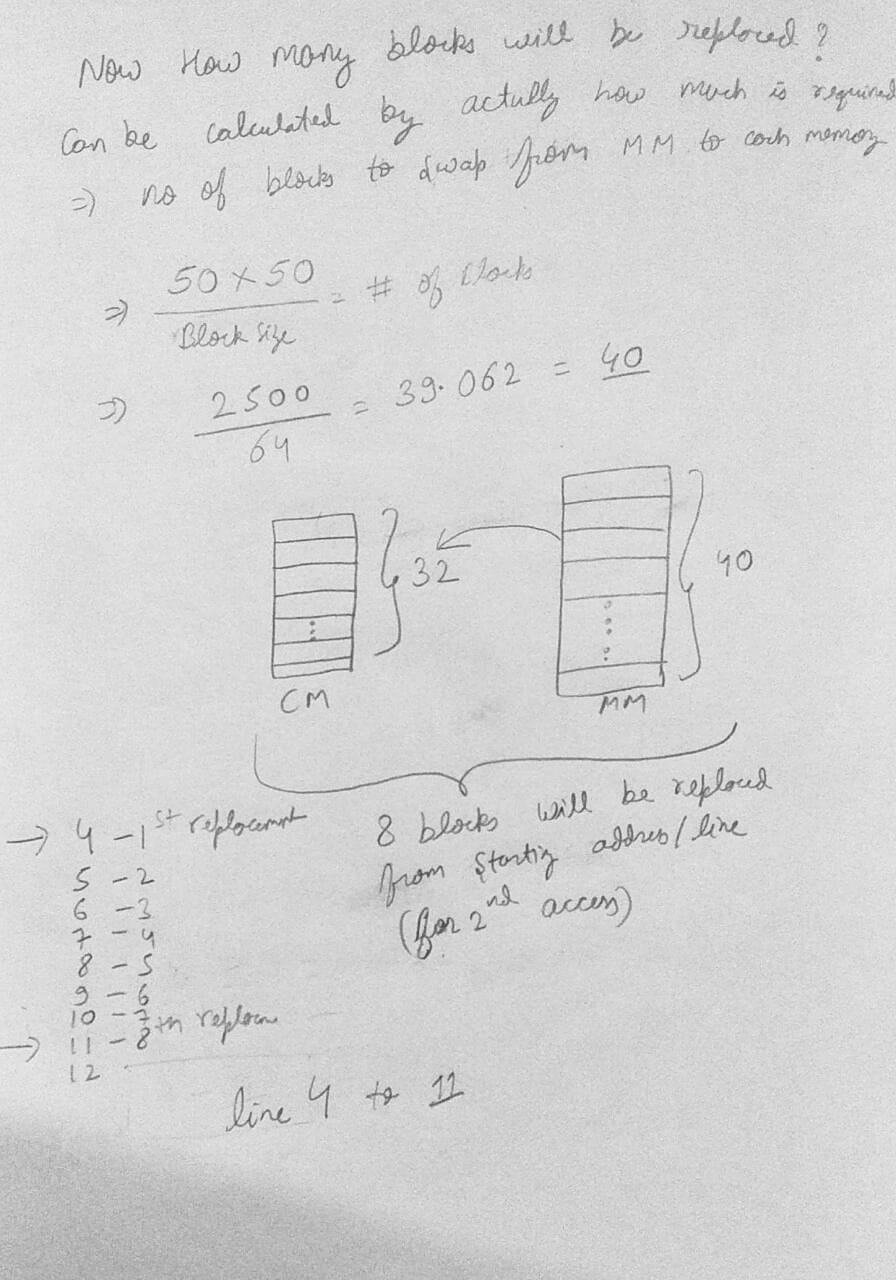 Now How many blocks will be replaced ?
Can be calculated by actully how much is required
⇒ no of blocks to swap from MM to cach memory
⇒ 50 × 50 / Block Size = # of Blocks
⇒ 2500 / 64 = 39.062 = 40
32
40
CM
MM
→ 4 - 1st replacemnt
5 - 2
6 - 3
7 - 4
8 - 5
9 - 6
10 - 7
→ 11 - 8th replacm
12
8 blocks will be replaced
from starting addres/line
(for 2nd access)
line 4 to 11